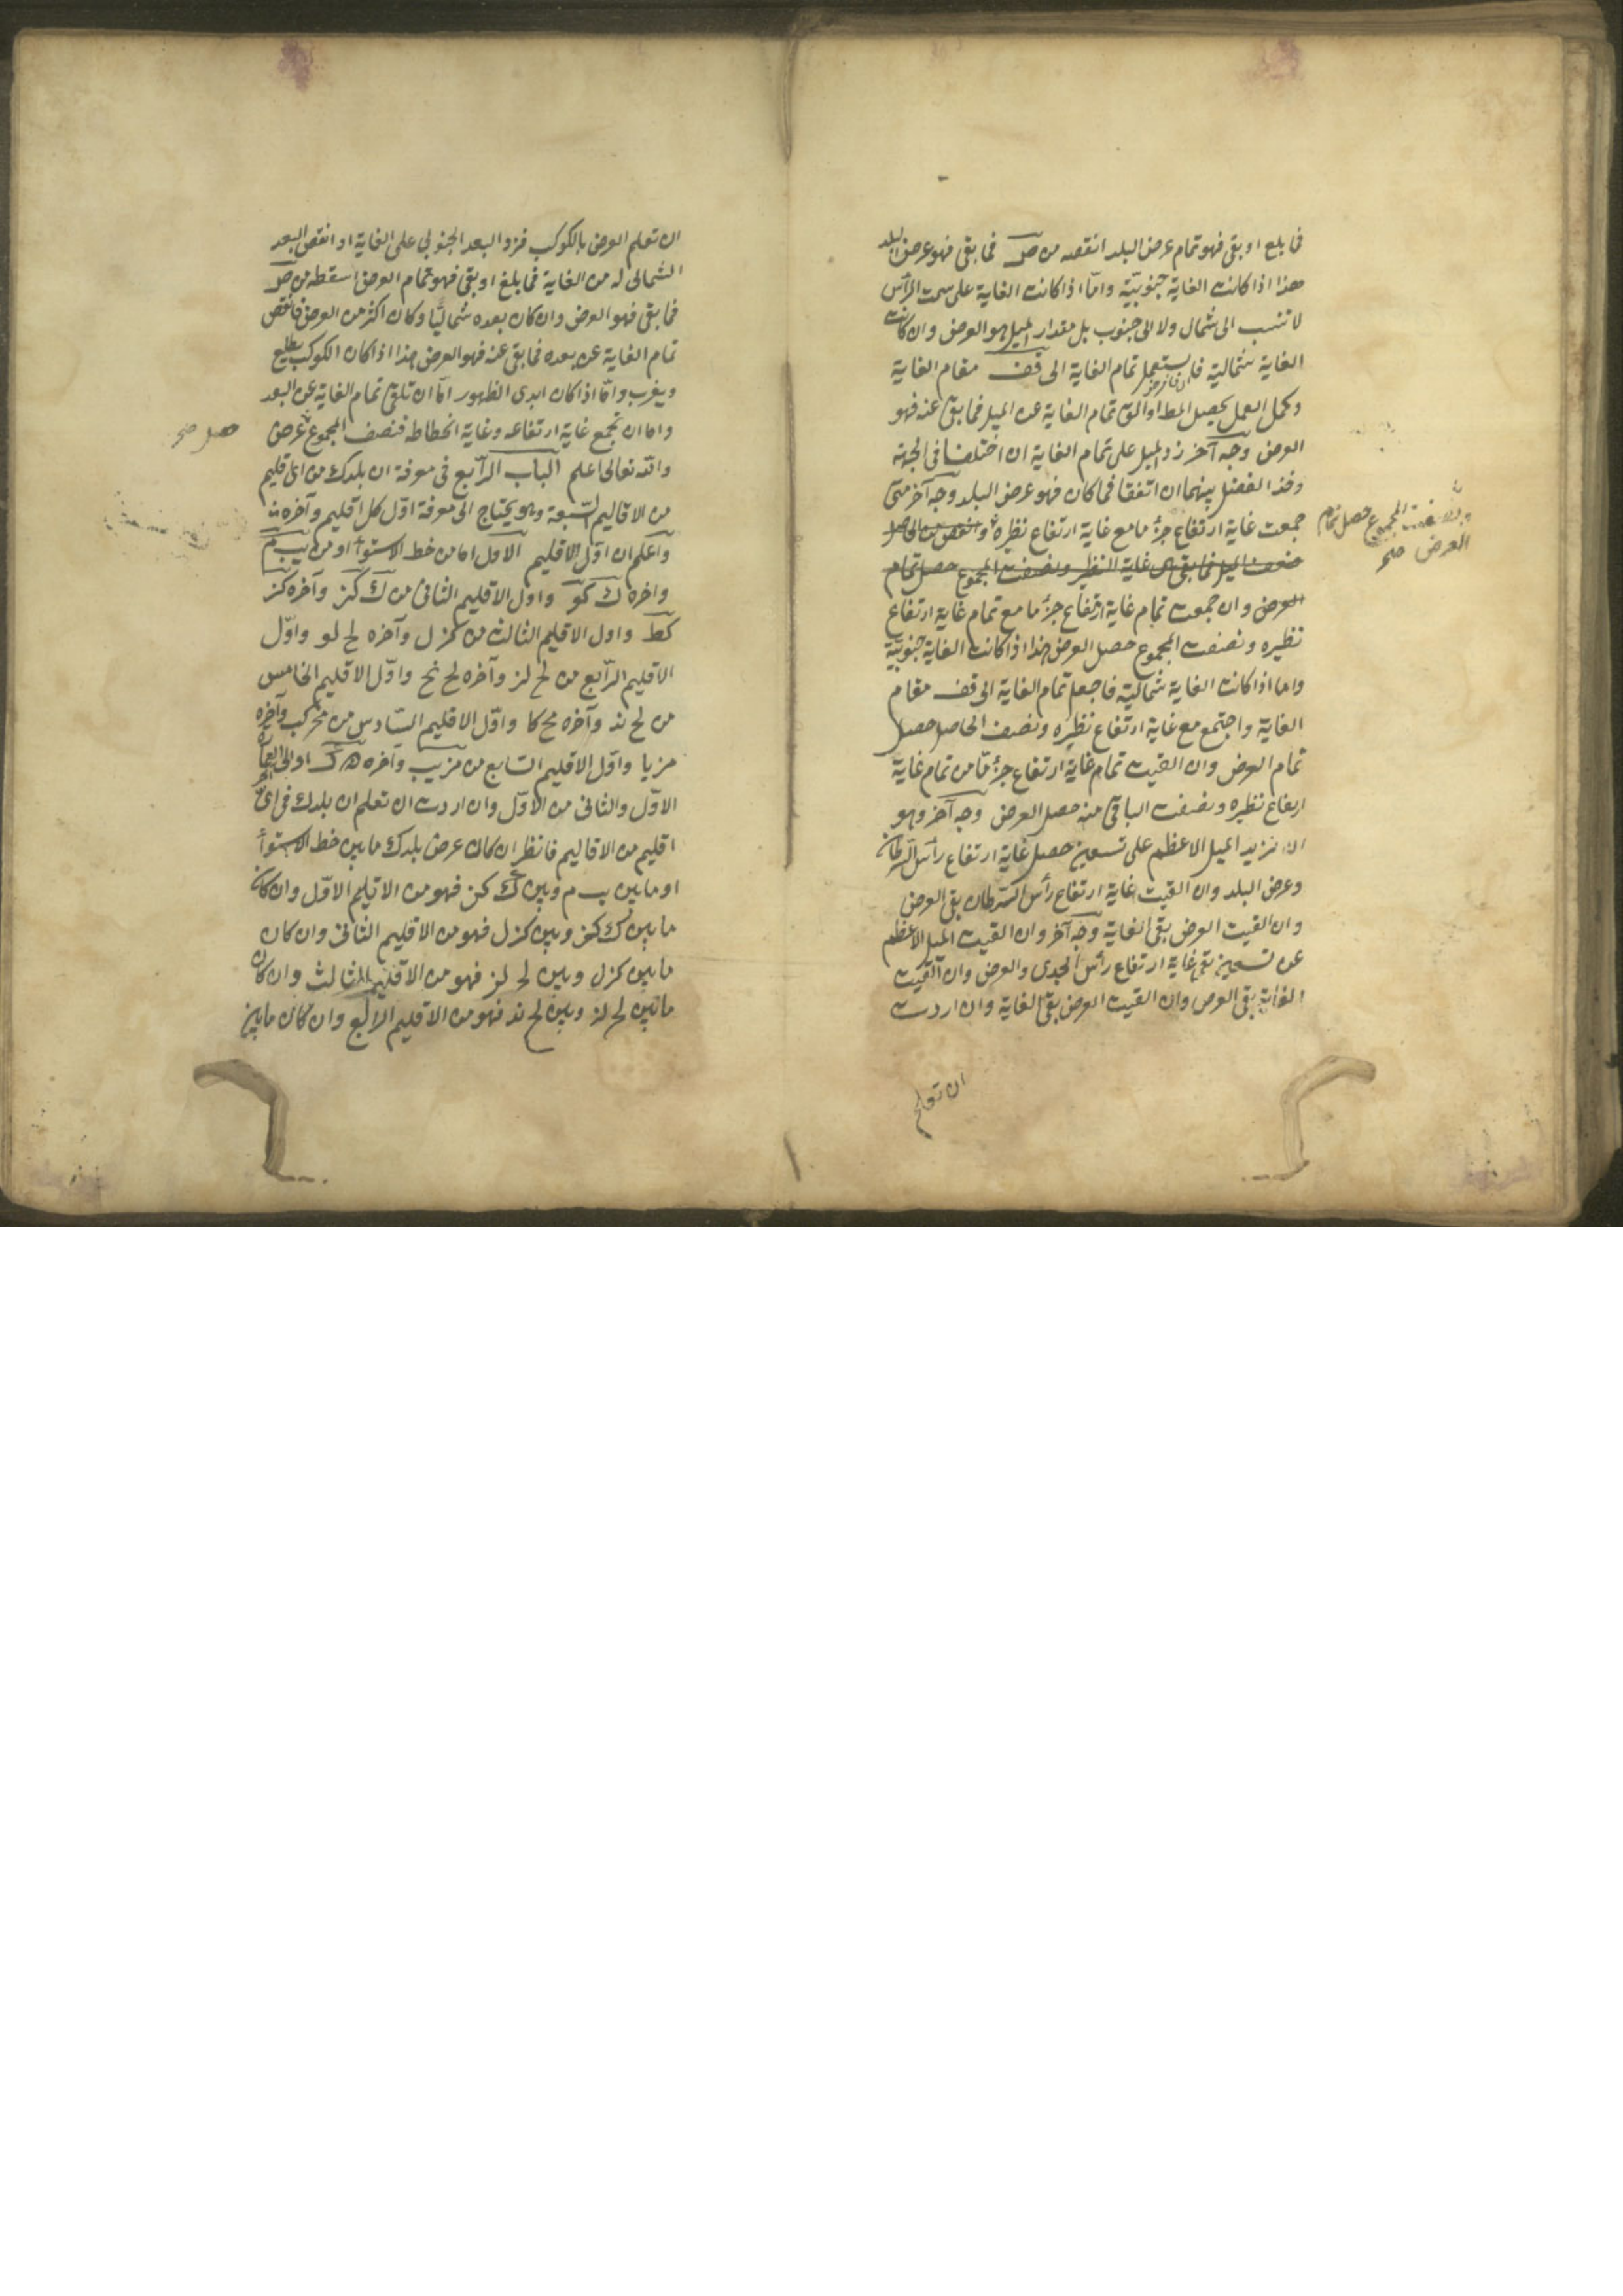 فما بلغ او بقى فهو تمام عرض البلد انقصه من ص فما بقى فهو عرض البلد
هذا اذا كانت الغاية جنوبيّة وامّا اذا كانت الغاية على سمت الرأس
لا تنسب الى شمال ولا الى جنوب بل مقدار الميل هو العرض وان كانت
الغاية شمالية فا يستعمل تمام الغاية الى قف مقام الغاية
وكمل العمل يحصل المط او الق تمام الغاية عن الميل فما بقى عنه فهو
العرض وجه آخر زد الميل على تمام الغاية ان اختلفا فى الجهة
وخذ الفضل بينهما ان اتفقا فما كان فهو عرض البلد وجه آخر متى
جمعت غاية ارتفاع جزء ما مع غاية ارتفاع نظيره وانقص من الحاصل
ضعف الميل فما بقى غاية النظير ونصفت المجموع حصل تمام
ونصفت المجموع حصل تمام
العرض صح
العرض وان جمعت تمام غاية ارتفاع جزء ما مع تمام غاية ارتفاع
نظيره ونصفت المجموع حصل العرض هذا اذا كانت الغاية جنوبيّة
واما اذا كانت الغاية شماليّة فاجعل تمام الغاية الى قف مقام
الغاية واجتمع مع غاية ارتفاع نظيره ونصف الحاصل حصل
تمام العرض وان القيت تمام غاية ارتفاع جزء مّا من تمام غاية
ارتفاع نظيره ونصفت الباقى منه حصل العرض وجه آخر وهو
ان نزيد الميل الاعظم على تسعين حصل غاية ارتفاع رأس السّرطان
وعرض البلد وان القيت غاية ارتفاع رأس السّرطان بقى العرض
وان القيت العرض بقى الغاية وجه آخر وان القيت الميل الاعظم
عن تسعين بقى غاية ارتفاع رأس الجدى والعرض وان القيت
الغاية بقى العرض وان القيت العرض بقى الغاية وان اردت
ان تعلم
ان تعلم العرض بالكوكب فزد البعد الجنوبي على الغاية او انقص البعد
الشمالى له من الغاية فما بلغ او بقى فهو تمام العرض اسقطه من ص
فما بقى فهو العرض وان كان بعده شماليّا وكان اكثر من العرض فانقص
تمام الغاية عن بعده فما بقى عنه فهو العرض هذا اذا كان الكوكب يطلع
ويغرب وامّا اذا كان ابدى الظهور امّا ان تلقى تمام الغاية عن البعد
واما ان تجمع غاية ارتفاعه وغاية انحطاطه فنصف المجموع عرض
حصل صح
والله تعالى اعلم الباب الرّابع فى معرفة ان بلدك من اى اقليم
من الاقاليم السّبعة وهو يحتاج الى معرفة اوّل كل اقليم وآخره
واعلم ان اوّل الاقليم الاول اما من خط الاستوآء او من يب م
واخره ك كو واول الاقليم الثانى من ك كز وآخره كز
كط واول الاقليم الثالث من كز ل وآخره لح لو واوّل
الاقليم الرّابع من لح لز وآخره لح نح واوّل الاقليم الخامس
من لح نذ وآخره مح كا واوّل الاقليم السّادس من مح كب وآخره
مز يا واوّل الاقليم السّابع من مز يب وآخره او الى العمارة
الاوّل والثانى من الاوّل وان اردت ان تعلم ان بلدك فى اى
اقليم من الاقاليم فانظر ان كان عرض بلدك ما بين خط الاستوآء
او ما بين يب م وبين ك كز فهو من الاقليم الاوّل وان كان
ما بين ك كز وبين كز ل فهو من الاقليم الثانى وان كان
ما بين كز ل وبين لح لز فهو من الاقليم الثالث وان كان
ما بين لح لز وبين لح نذ فهو من الاقليم الرابع وان كان ما بين